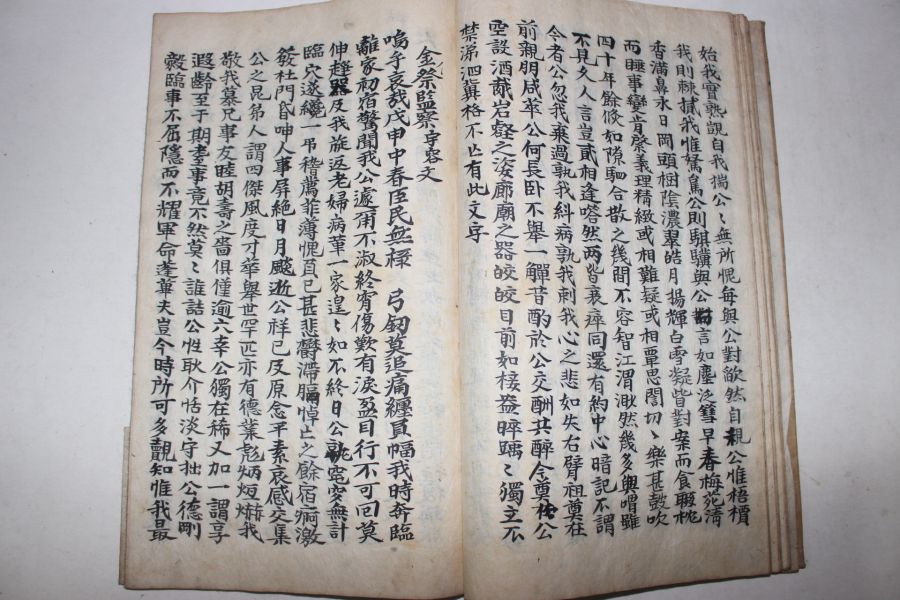 始我實熟覬自我揣公〻無所愧每與公對欿然自親公惟梧檟
我則棘樲我惟駑駘公則騏驥與公對言如塵泛篲早春梅花淸
香滿鼻水日岡頭樹陰濃翠皓月揚輝白雪凝皆對案而食聯枕
而睡事變肯綮義理精緻或相難疑或相覃思誾切〻樂甚鼓吹
四十年餘倏如隙駟合散之幾間不容智江湄渺然幾多輿喟雖
不見久人言豈貳相逢嗒然兩皆衰瘁同還有約中心暗記不謂
今者公忽我棄過孰我糾病孰我刺我心之悲如失右臂祖奠在
前親朋咸萃公何長臥不舉一觶昔酌於公交酬共醉今奠於公
空設酒胾岩壑之姿廊廟之器皎皎目前如接益睟踽〻獨立不
禁涕泗冀格不亡有此文字
金祭監察宇容文
嗚乎哀哉戊申中春臣民無祿 弓釰莫追痛纏員幅我時奔臨
離家初宿驚聞我公遽甭不淑終宵傷歎有淚盈目行不可回莫
伸趨哭及我旋返老婦病革一家遑〻如不終日公孰窀穸無計
臨穴遂纔一弔稽薦菲薄愧負已甚悲鬱滯膈悼亡之餘宿病激
發杜門呻人事屏絕日月飇逝公祥已及原念平素哀感交集
公之昆弟人謂四傑風度才華舉世罕匹亦有德業彪炳烜爀我
敬我慕兄事友睦胡壽之嗇俱僅逾六幸公獨在稀又加一謂享
遐齡至于期耋事竟不然莫〻誰詰公性耿介恬淡守拙公德剛
毅臨事不屈隱而不耀軍命蓬蓽夫豈今時所可多覿知惟我最